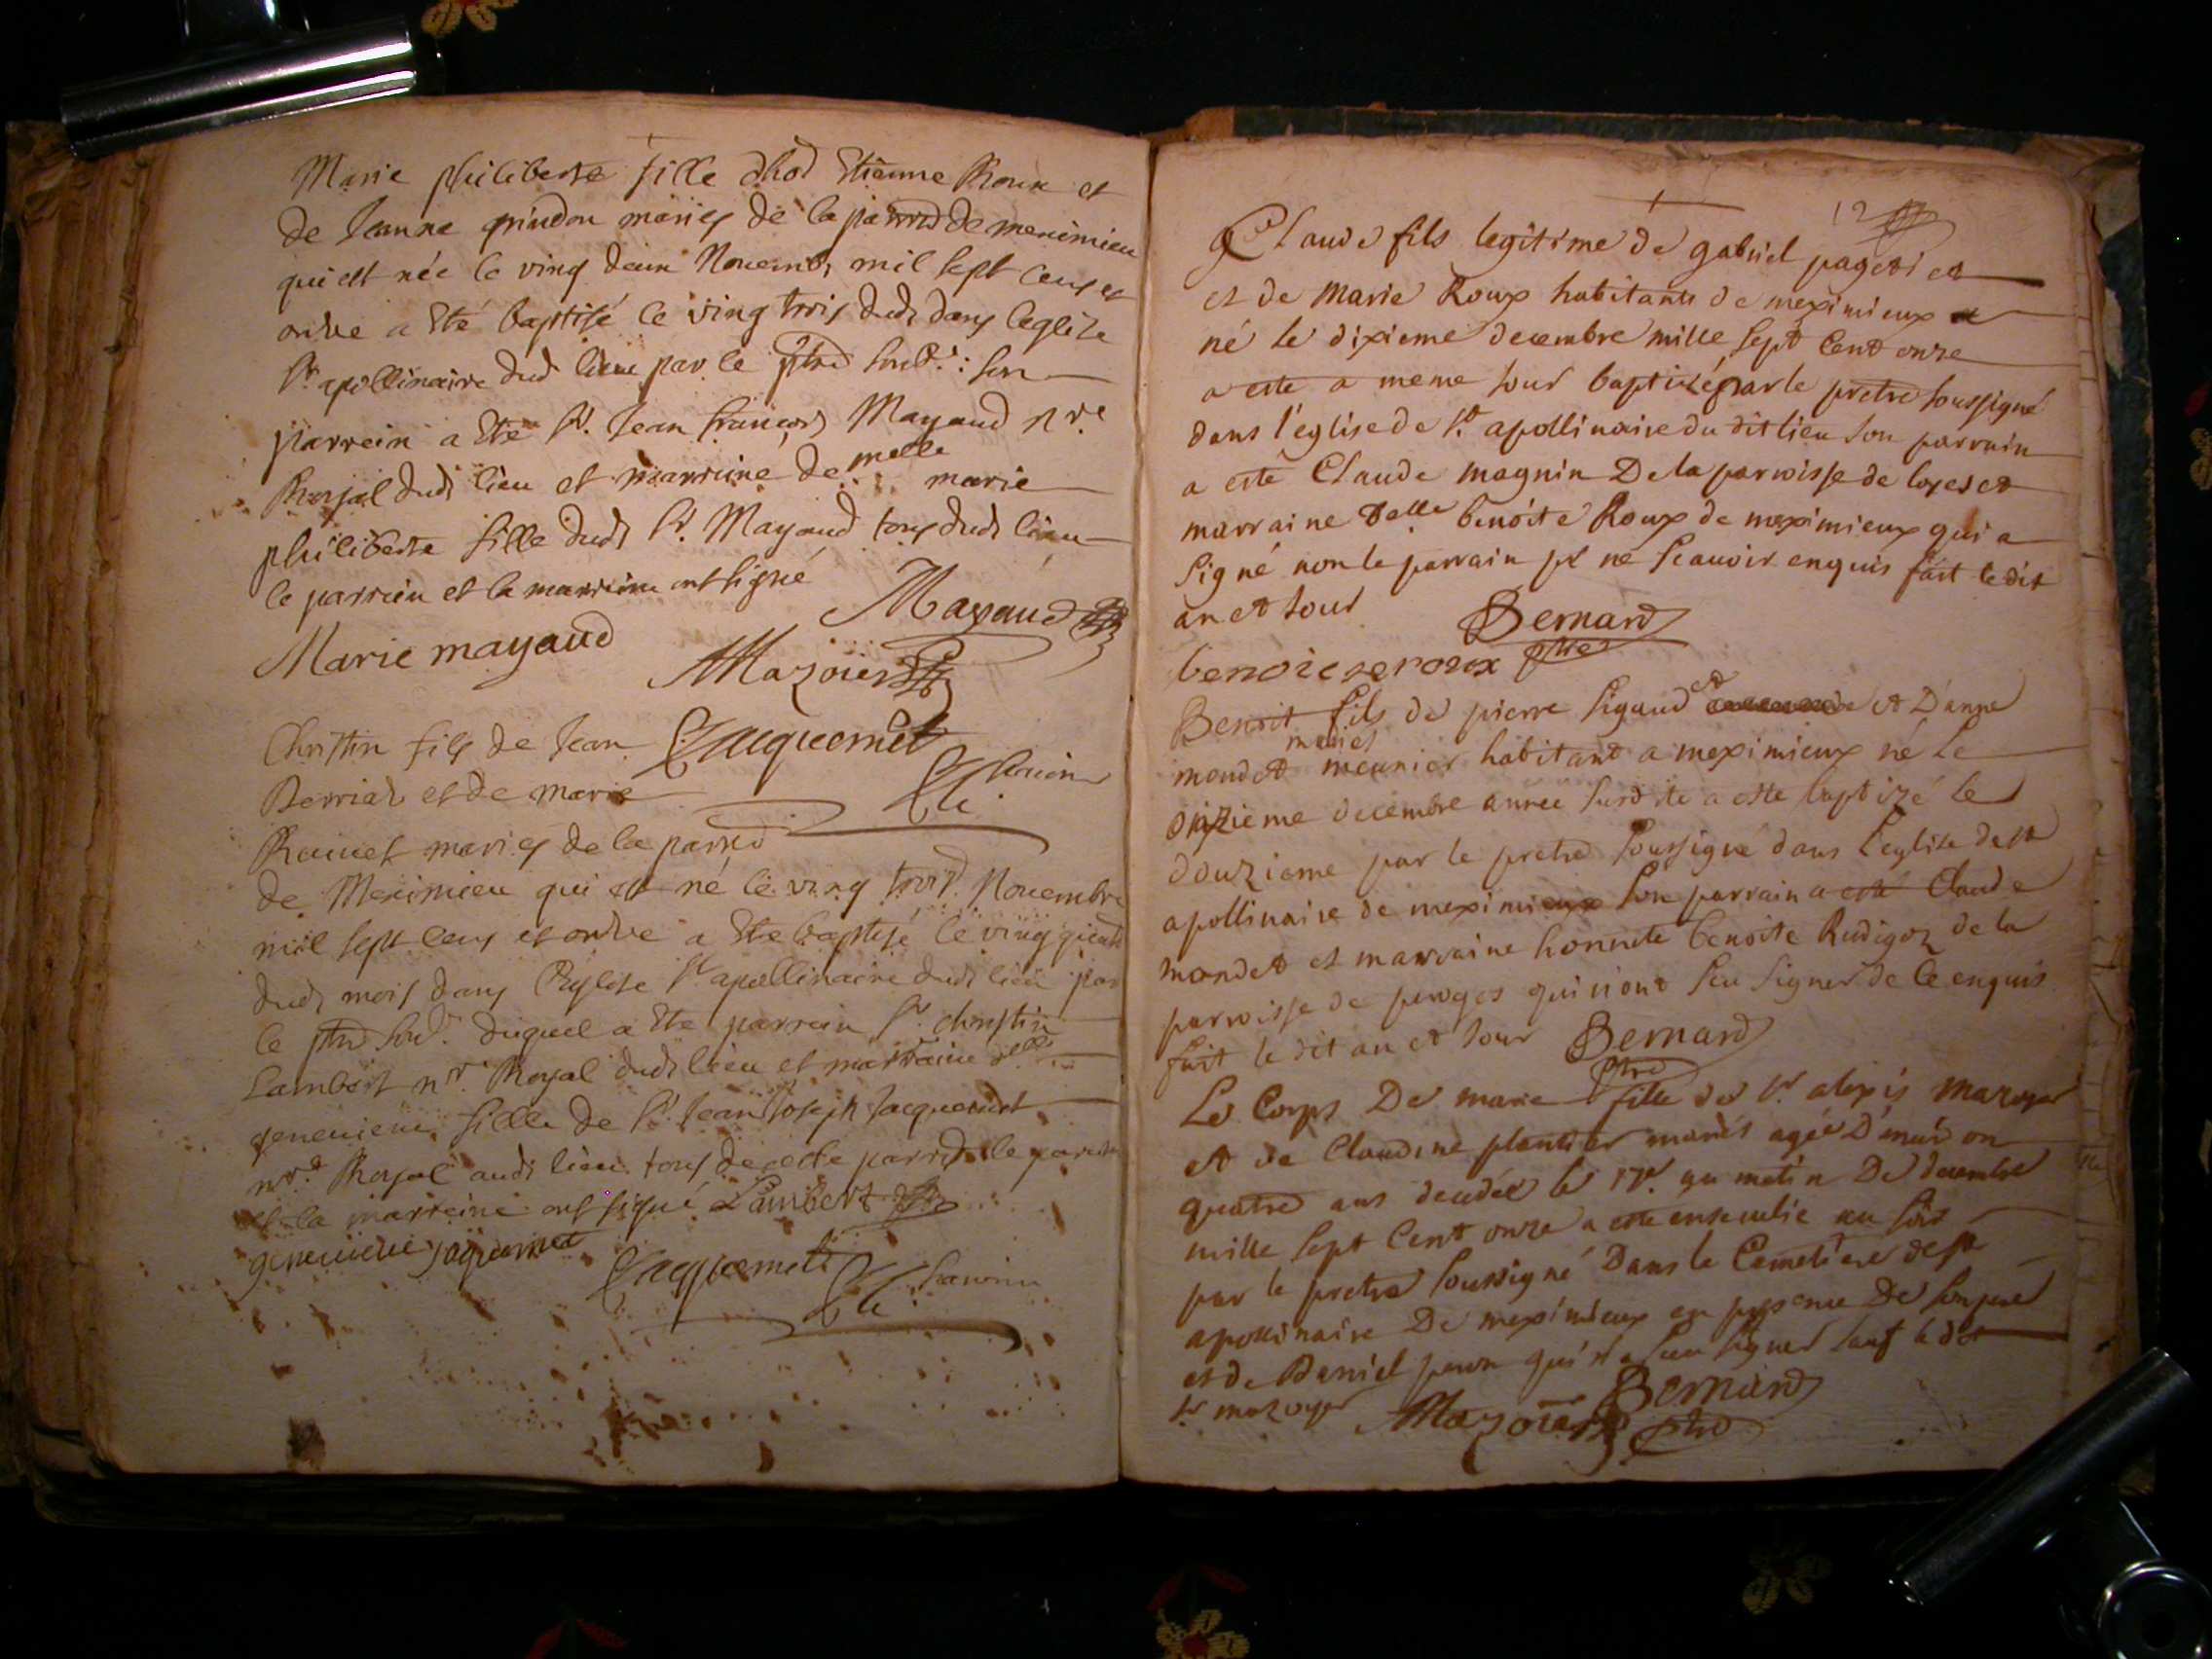 Marie philiberte fille dhod Etienne Roux et
de Jeanne maries de la parrsse de meximieu
qui est née le ving deux Novembr mil sept cens et
onze a Eté baptisé le ving trois dudt dans leglize
St apollinaire dud lieu par le ptre sousd. son
parrein a Eté Sr. Jean françois Mayaud nre
Royal dudt lieu et marreine delle marie
philiberte fille dudt Sr. Mayaud tous dudt lieu
le parrein et la marreine ont signé
Mayaud
Marie mayaud
Mazoier
Christin fils de Jean
Jacquemet
Berriat et de marie
maries de la parrse
de Meximieu qui est né le ving trois Novembre
mil sept cens et onze a Ete baptisé le ving
dudt mois dans l'Eglise St apollinaire dudt lieu par
le ptre sousd. duquel a Ete parrein Sr. christin
Lambert nre. Royal dudt lieu et marraine delle
genevieve fille de Sr. Jean Joseph Jacquemet
nre. Royal audt lieu tous de cette parrse le parrein
et la marreine ont signé Lambert
genevieve jaquemet
Jacquemet
12
Claude fils legitime de gabriel paget et
et de Marie Roux habitants de meximieux
né le dixieme decembre mille sept cent onze
a esté a meme jour baptizé par le pretre soussigné
dans l'eglise de St. apollinaire du dit lieu son parrain
a esté Claude magnin De la parroisse de loyes et
marraine Delle benoite Roux de meximieux qui a
signé non le parrain pr ne scauoir enquis fait le dit
an et jour Bernard
benoiteroux ptre
Benoit fils de pierre sigaud et D'anne
mondet maries meunier habitant a meximieux né le
onzieme decembre année susdite a esté baptizé le
douzieme par le pretre soussigné dans l'eglise de st
apollinaire de meximieux son parrain a esté Claude
mondet et marraine honnete benoite Rudigoz de la
parroisse de peroges qui n'ont sçu signer de ce enquis
fait le dit an et jour Bernard
ptre
Le Corps De marie fille de Sr. alexis mazoyer
et de Claudine plantier mariés agée D'environ
quatre ans decedée le 17e. au matin De decembre
mille sept Cent onze a esté ensevelie au soir
par le pretre soussigné Dans le Cemetiere de st
apollinaire De meximieux en presence De son pere
et de Daniel qui n'a sceu signer sauf le dit
Sr mazoyer
Bernard
Mazoier ptre